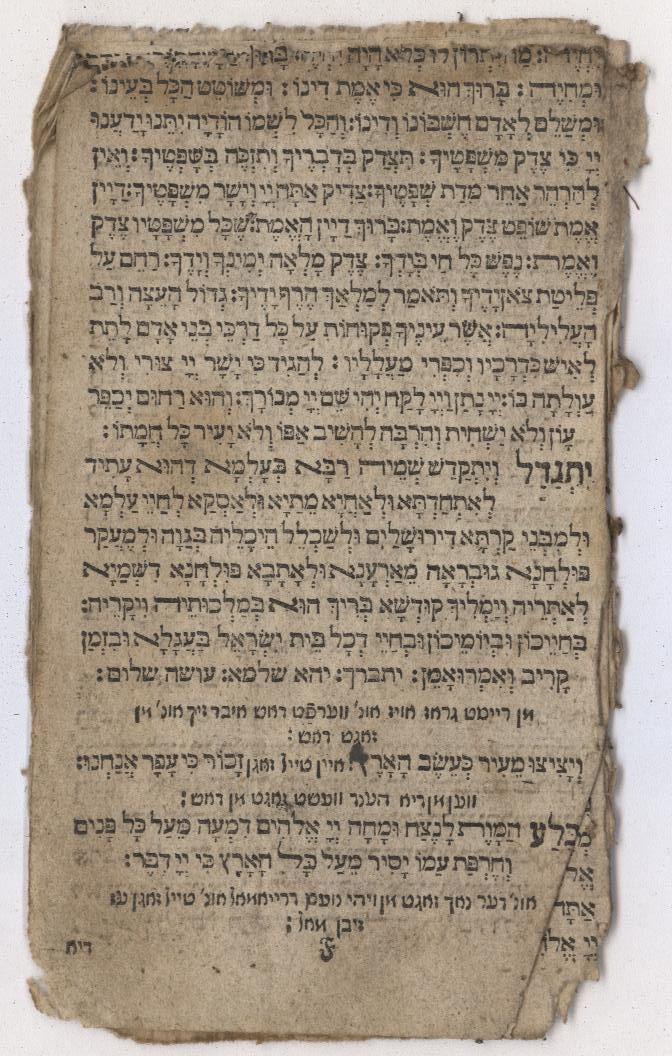 וּמְחַיֶּה: בָּרוּךְ הוּא כִּי אֱמֶת דִּינוֹ: וּמְשׁוֹטֵט הַכֹּל בְּעֵינָיו:
וּמְשַׁלֵּם לְאָדָם חֶשְׁבּוֹנוֹ וְדִינוֹ: וְהַכֹּל לִשְׁמוֹ הוֹדָיָה יִתֵּנוּ יָדַעְנוּ
יְיָ כִּי צֶדֶק מִשְׁפָּטֶיךָ: תִּצְדַּק בְּדָבְרֶיךָ וְתִזְכֶּה בְּשָׁפְטֶיךָ: וְאֵין
לְהַרְהֵר אַחַר מִדַּת שָׁפְטֶיךָ: צַדִּיק אַתָּה יְיָ וְיָשָׁר מִשְׁפָּטֶיךָ: דַּיָּן
אֱמֶת שׁוֹפֵט צֶדֶק וֶאֱמֶת: בָּרוּךְ דַּיָּן הָאֱמֶת: שֶׁכָּל מִשְׁפָּטָיו צֶדֶק
וֶאֱמֶת: נֶפֶשׁ כָּל חַי בְּיָדֶךָ: צֶדֶק מָלְאָה יְמִינְךָ וְיָדֶךָ: רַחֵם עַל
פְּלֵיטַת צֹאן יָדֶיךָ וְתֹאמַר לַמַּלְאָךְ הֶרֶף יָדֶיךָ: גְּדוֹל הָעֵצָה וְרַב
הָעֲלִילִיָּה: אֲשֶׁר עֵינֶיךָ פְּקוּחוֹת עַל כָּל דַּרְכֵי בְּנֵי אָדָם לָתֵת
לְאִישׁ כִּדְרָכָיו וְכִפְרִי מַעֲלָלָיו: לְהַגִּיד כִּי יָשָׁר יְיָ צוּרִי וְלֹא
עַוְלָתָה בּוֹ: יְיָ נָתַן וַיְיָ לָקַח יְהִי שֵׁם יְיָ מְבוֹרָךְ: וְהוּא רַחוּם יְכַפֵּר
עָוֹן וְלֹא יַשְׁחִית וְהִרְבָּה לְהָשִׁיב אַפּוֹ וְלֹא יָעִיר כָּל חֲמָתוֹ:
יִתְגַּדַּל וְיִתְקַדֵּשׁ שְׁמֵיהּ רַבָּא בְּעָלְמָא דְהוּא עָתִיד
לְאִתְחַדְתָּא וּלְאַחְיָא מֵתַיָא וּלְאַסָּקָא לְחַיֵּי עַלְמָא
וּלְמִבְנֵי קַרְתָּא דִירוּשָׁלַיִם וּלְשַׁכְלֵל הֵיכָלֵיהּ בְּגַוָּהּ וּלְמֶעְקַר
פּוּלְחָנָא נוּכְרָאָה מֵאַרְעָנָא וּלְאָתָבָא פּוּלְחָנָא דִשְׁמַיָּא
לְאַתְרֵיהּ וְיַמְלִיךְ קוּדְשָׁא בְּרִיךְ הוּא בְּמַלְכוּתֵיהּ וִיקָרֵיהּ:
בְּחַיֵּיכוֹן וּבְיוֹמֵיכוֹן וּבְחַיֵּי דְכָל בֵּית יִשְׂרָאֵל בַּעֲגָלָא וּבִזְמַן
קָרִיב וְאִמְרוּ אָמֵן: יתברך: יהא שלמא: עושה שלום:
מן רייסט גראז אויז אונ' ווערפֿט דאש איבר זיך אונ' מן
זאגט דאש:
וְיָצִיצוּ מֵעִיר כְּעֵשֶׂב הָאָרֶץ: אייֿן טייל זאגן זָכוּר כִּי עָפָר אֲנָחְנוּ:
ווען מן דיא הענד וועשט זאגט מן דאש:
בִּלַּע הַמָּוֶת לָנֶצַח וּמָחָה יְיָ אֱלֹהִים דִּמְעָה מֵעַל כָּל פָּנִים
וְחֶרְפַּת עַמּוֹ יָסִיר מֵעַל כָּל הָאָרֶץ כִּי יְיָ דִּבֵּר:
אונ' דער נאך זאגט מן ויהי נועם דרייאמאל אונ' טייל זאגן עז
זיבן מאל: